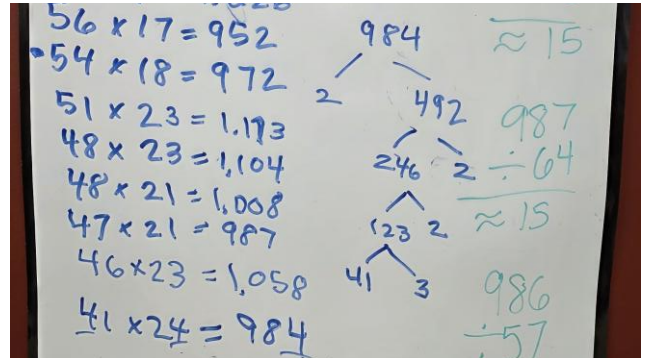 56 x 17 = 952
•54 x 18 = 972
51 x 23 = 1.173
48 x 23 = 1,104
48 x 21 = 1,008
47 x 21 = 987
46 x 23 = 1,058
41 x 24 = 984
984
2 492
246 2
123 2
41 3
≈ 15
987
÷ 64
≈ 15
986
÷ 57